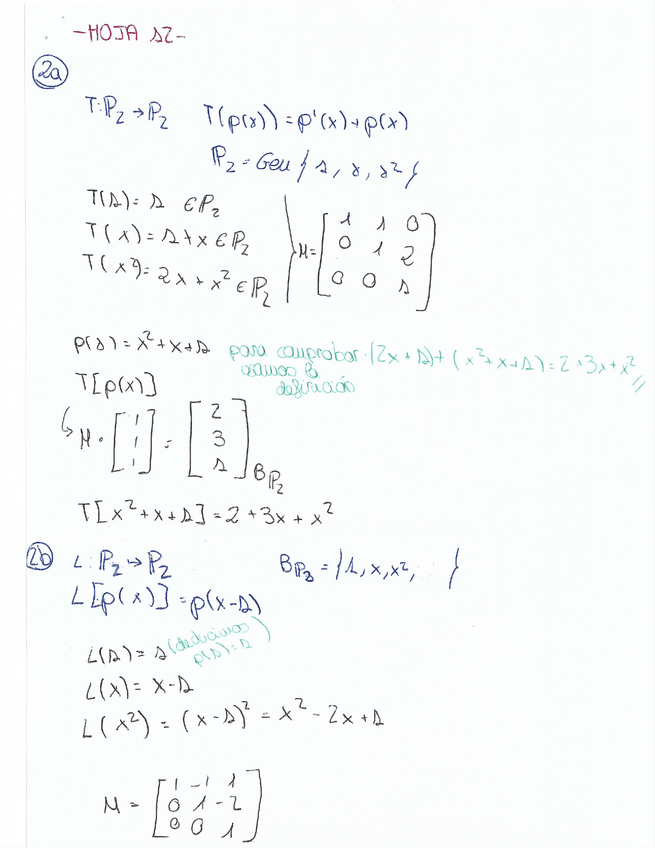 -HOJA 12-
2a
T: ℙ₂ → ℙ₂ T(p(x)) = p'(x) + p(x)
ℙ₂ = Gen { 1, x, x² }
T(1) = 1 ∈ ℙ₂
T(x) = 1 + x ∈ ℙ₂
T(x²) = 2x + x² ∈ ℙ₂
M = [ 1 1 0
0 1 2
0 0 1 ]
p(x) = x² + x + 1 para comprobar · (2x + 1) + (x² + x + 1) = 2 + 3x + x² //
usamos la
definición
T[p(x)]
↳ M · [ 1 1 1 ] = [ 2 3 1 ] B ℙ₂
T[x² + x + 1] = 2 + 3x + x²
2b L: ℙ₂ → ℙ₂ B ℙ₂ = { 1, x, x², }
L[p(x)] = p(x-1)
L(1) = 1 (deducimos
p(1) = 1)
L(x) = x-1
L(x²) = (x-1)² = x² - 2x + 1
M = [ 1 -1 1
0 1 -2
0 0 1 ]